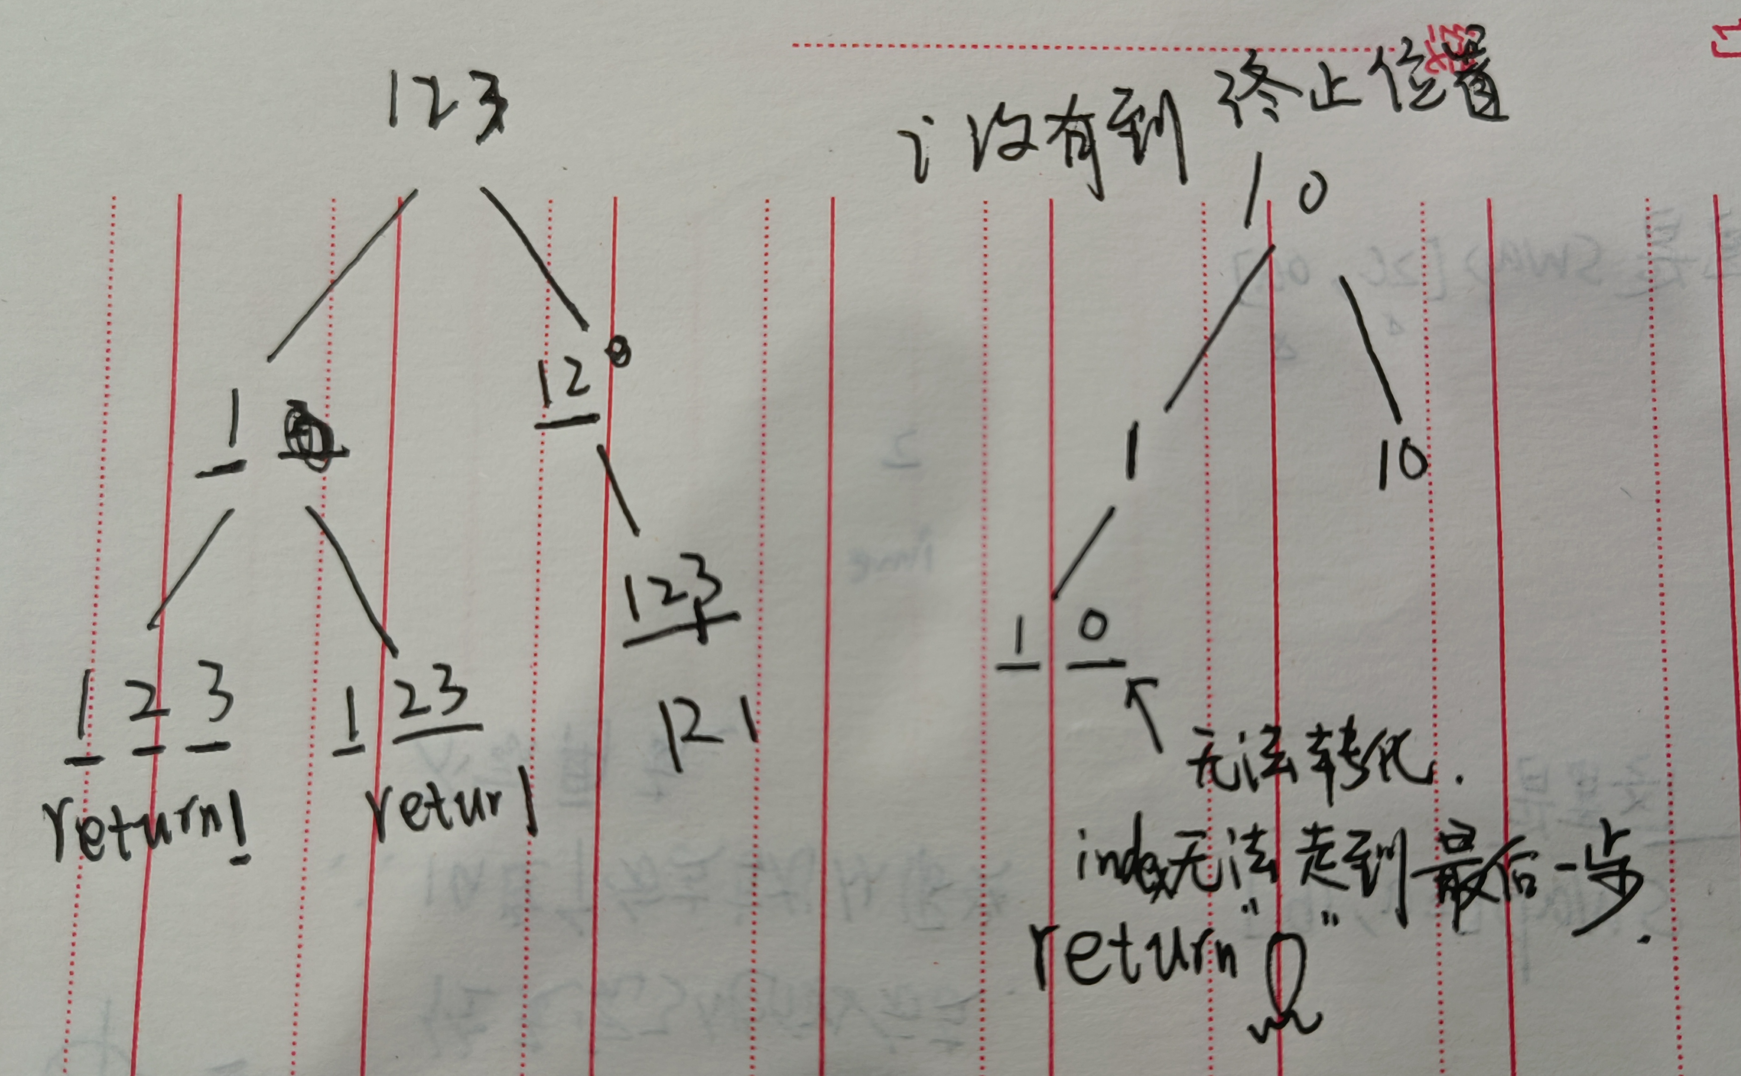 123
1
12
1 2 3
1 23
123
121
return!
retur!
i 没有到 终止位置
10
1
10
1 0
无法转化.
index无法走到最后一步.
return "0"